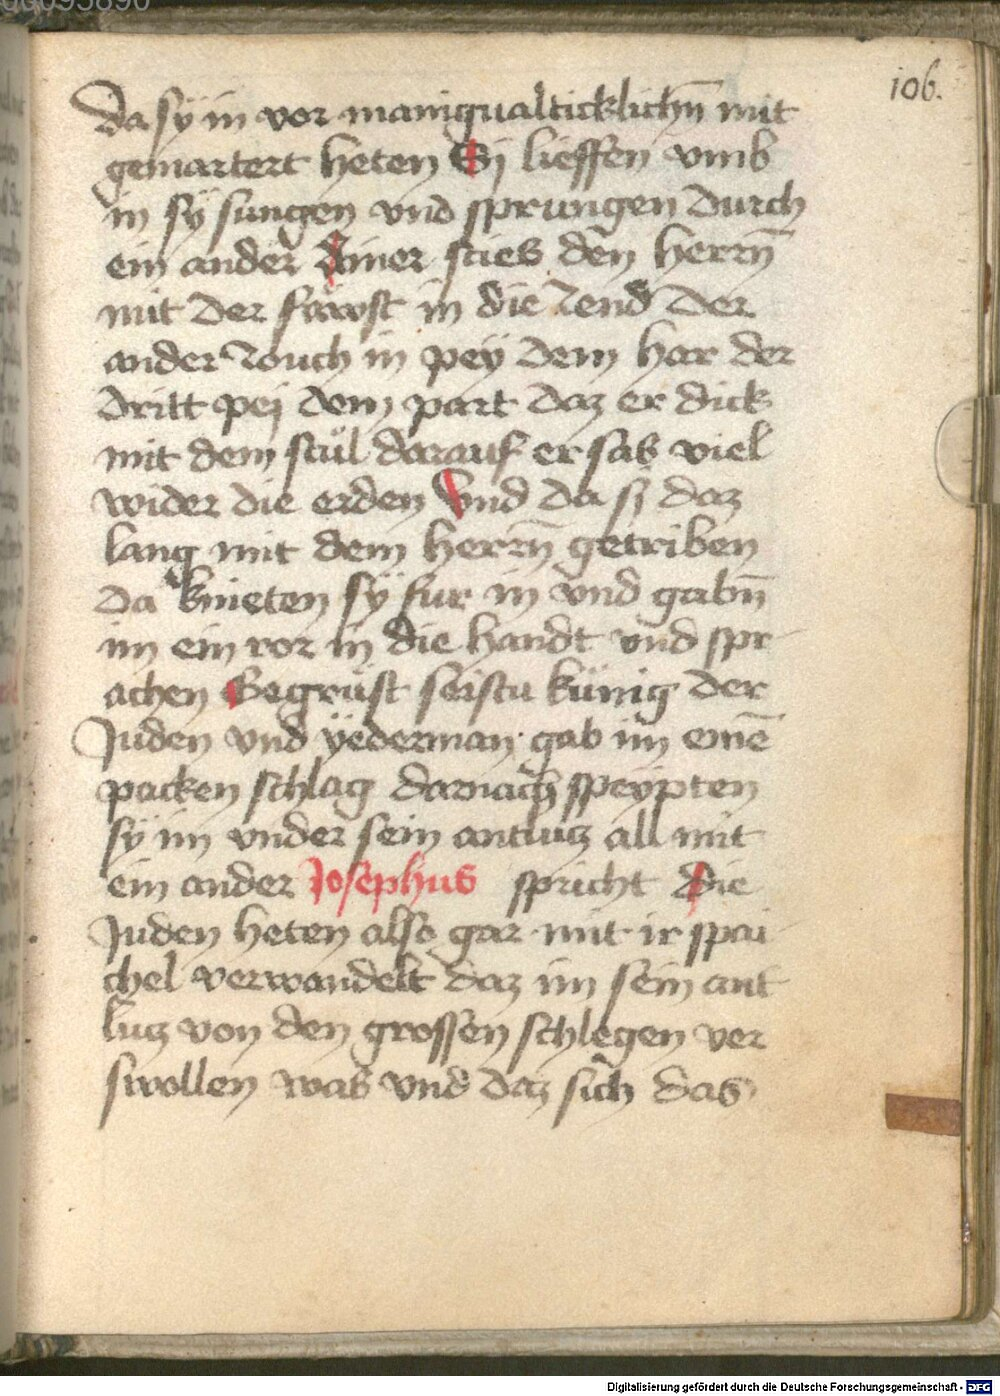 106.
da sÿ in vor maniqualticklichn̄ mit
gemartert heten Si lieffen vmb
in sÿ sungen vnd sprungen durch
ein ander Ainer sties den herrn̄
mit der fawst in die lend der
ander zouch in peÿ dem har der
dritt pej dem part daz er dick
mit dem stůl darauf er sas viel
wider die erden Vnd da sj daz
lang mit dem herrn̄ getriben
da knieten sÿ fur in vnd gabn̄
im ein ror in die handt vnd spr
achen Gegrüst seistu künig der
Juden vnd ÿederman gab im einē
packen schlag darnach speÿpten
sÿ im vnder sein antlucz all mit
ein ander Josephus spricht Die
Juden heten also gar mit ir spai
chel verwandelt daz im sein ant
lucz von den grossen schlegen ver
swollen was vnd daz sich das
Digitalisierung gefördert durch die Deutsche Forschungsgemeinschaft - DFG